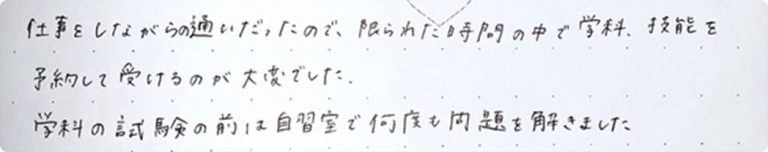 仕事をしながらの通いだったので、限られた時間の中で学科、技能を
予約して受けるのが大変でした.
学科の試験の前は自習室で何度も問題を解きました